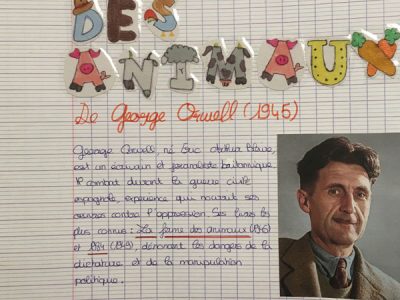 DES
ANIMAUX
De George Orwell (1945)
George Orwell né Eric Arthur Blair
est un écrivain et journaliste britannique.
Il combat durant la guerre civile
espagnole, expérience qui nourrit ses
œuvres contre l'oppression. Ses livres les
plus connus : La ferme des animaux (1945)
et 1984 (1949), dénoncent les dangers de la
dictature et de la manipulation
politique.